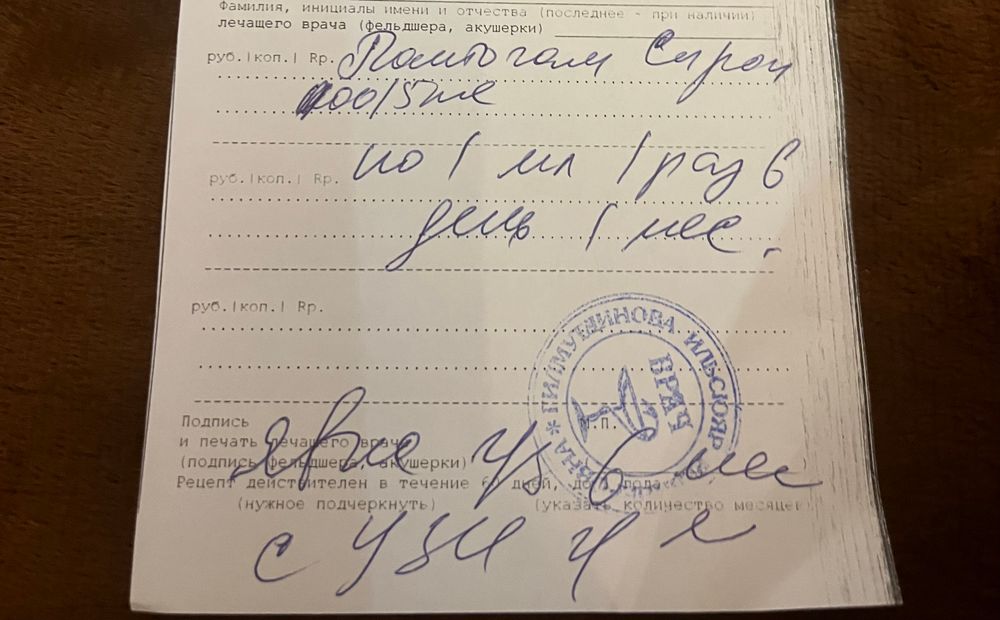 Фамилия, инициалы имени и отчества (последнее - при наличии)
лечащего врача (фельдшера, акушерки)
руб.|коп.| Rp. Пантогам Сироп
100/5мл
руб.|коп.| Rp. по 1 мл 1 раз в
день 1 мес.
руб.|коп.| Rp.
Подпись М.П.
и печать лечащего врача
(подпись фельдшера, акушерки)
Рецепт действителен в течение 60 дней, до 1 года
(нужное подчеркнуть) (указать количество месяцев)
явка ч/з 6 мес
с УЗИ
ГИЛМУТДИНОВА ИЛЬСЮЯР
ВРАЧ